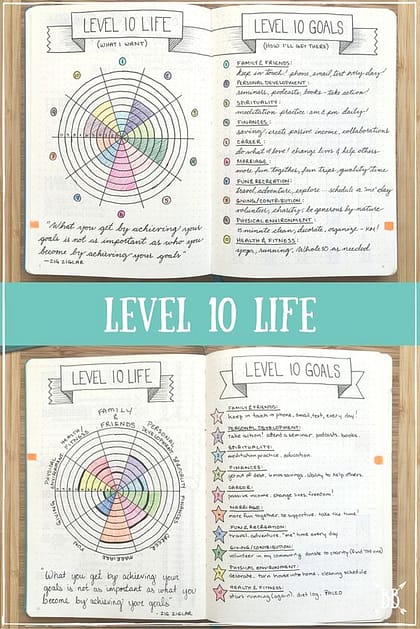 LEVEL 10 LIFE
(WHAT I WANT)
"What you get by achieving your
goals is not as important as who you
become by achieving your goals"
- ZIG ZIGLAR
LEVEL 10 GOALS
(HOW I'LL GET THERE)
FAMILY & FRIENDS:
keep in touch! phone, email, text every day!
PERSONAL DEVELOPMENT:
seminars, podcasts, books - take action!
SPIRITUALITY:
meditation practice - am & pm daily!
FINANCES:
saving, create passive income, collaborations
CAREER:
do what I love! change lives & help others
MARRIAGE:
more fun together, fun trips, quality time
FUN & RECREATION:
travel, adventure, explore - schedule a "me" day
GIVING/CONTRIBUTION:
volunteer, charity, be generous by nature
PHYSICAL ENVIRONMENT:
15 minute clean, decorate, organize
HEALTH & FITNESS:
yoga, running, Whole30 as needed
LEVEL 10 LIFE
LEVEL 10 LIFE
FAMILY
&
FRIENDS
PERSONAL
DEVELOPMENT
SPIRITUALITY
FINANCES
CAREER
MARRIAGE
FUN
GIVING
PHYSICAL
ENVIRONMENT
HEALTH/
FITNESS
"What you get by achieving your
goals is not as important as what you
become by achieving your goals"
- ZIG ZIGLAR
LEVEL 10 GOALS
FAMILY & FRIENDS:
keep in touch - phone, email, text, every day!
PERSONAL DEVELOPMENT:
take action! attend a seminar, podcasts, books.
SPIRITUALITY:
meditation practice, education.
FINANCES:
get out of debt, savings, ability to help others.
CAREER:
passive income, change lives, freedom!
MARRIAGE:
more fun together, be supportive, take the time!
FUN & RECREATION:
travel, adventure, "me" time every day
GIVING/CONTRIBUTION:
volunteer in my community, donate to charity
PHYSICAL ENVIRONMENT:
decorate, turn house into home, cleaning schedule
HEALTH & FITNESS:
start running (again), diet log, PALEO
BB